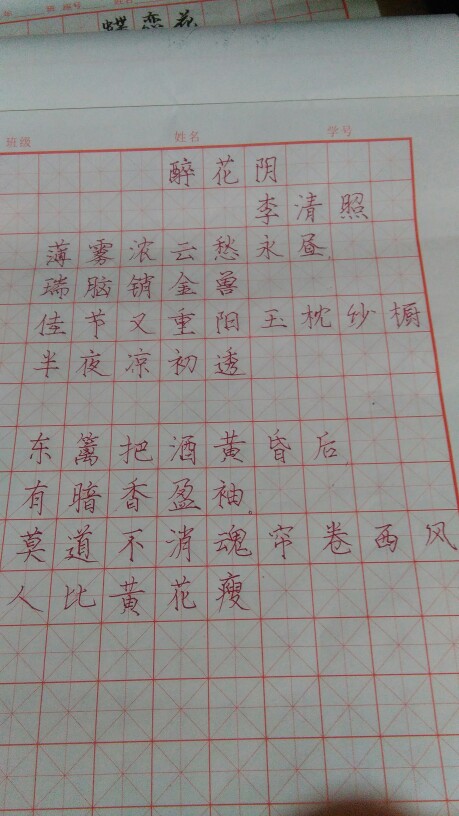 蝶恋花
班级 姓名 学号
醉花阴
李清照
薄雾浓云愁永昼，
瑞脑销金兽
佳节又重阳玉枕纱橱
半夜凉初透
东篱把酒黄昏后，
有暗香盈袖。
莫道不消魂帘卷西风
人比黄花瘦